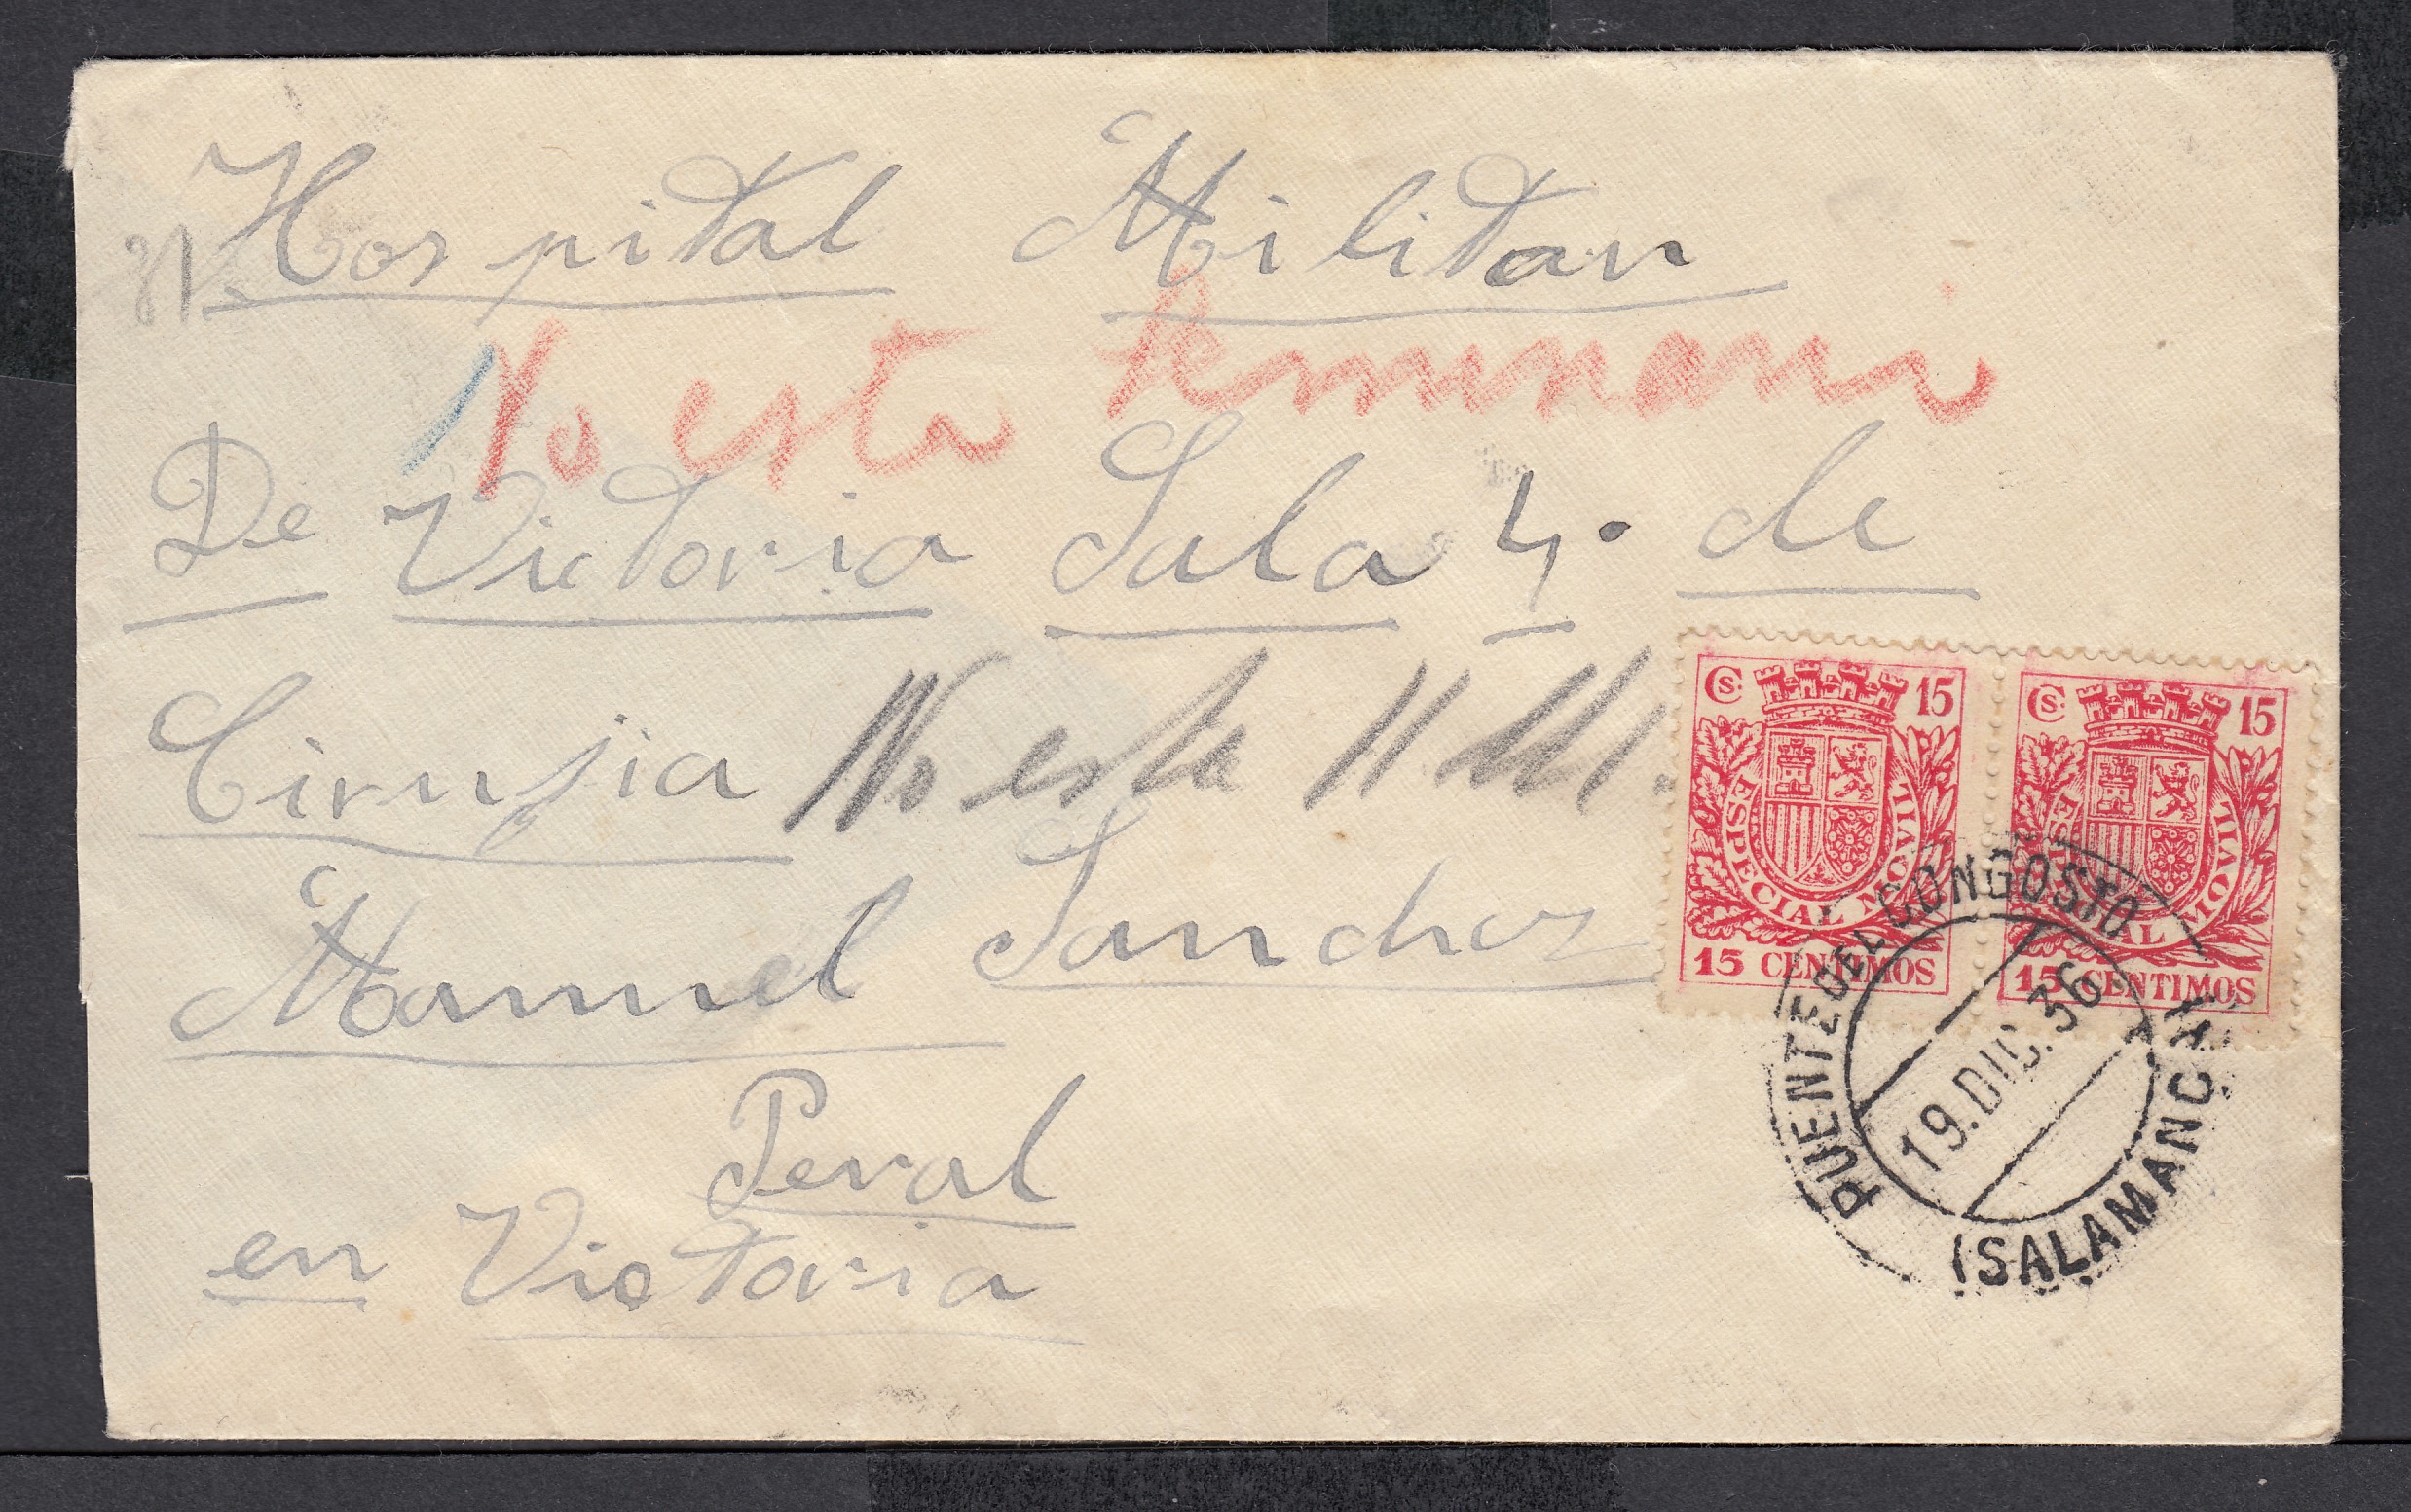 Hospital Militar
No esta Seminario
De Victoria Sala 4. de
Cirujia No esta H
Manuel Sanchez
Peral
en Victoria
Cs. 15
ESPECIAL MOVIL
15 CENTIMOS
Cs. 15
ESPECIAL MOVIL
15 CENTIMOS
PUENTE DEL CONGOSTO
19.DIC.36
(SALAMANCA)